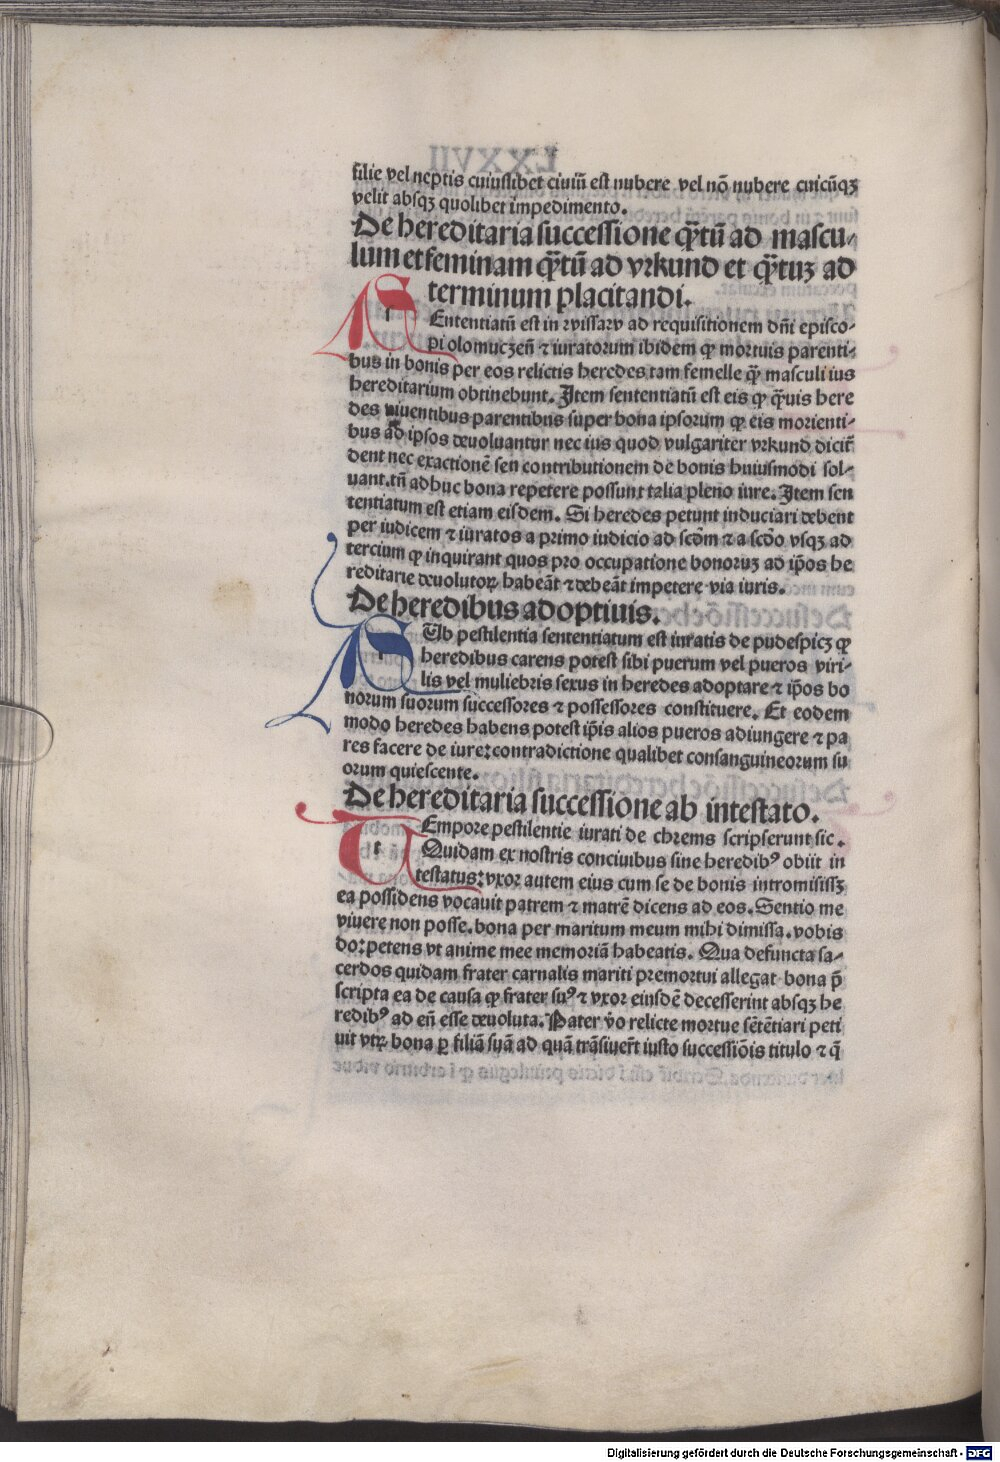 filie vel neptis cuiuslibet ciuiū est nubere vel nō nubere cuicūqꝫ
velit absqꝫ quolibet impedimento.
De hereditaria successione qꝫ̄tū ad mascu-
lum et feminam qꝫ̄tū ad vrkund et qꝫ̄tuꝫ ad
terminum placitandi.
SEntentiatū est in wissaw ad requisitionem dn̄i episco-
pi olomucꝫen̄ ⁊ iuratorum ibidem ꝙ mortuis parenti-
bus in bonis per eos relictis heredes tam femelle qꝫ̄ masculi ius
hereditarium obtinebunt. Item sententiatū est eis ꝙ qꝫ̄uis here
des viuentibus parentibus super bona ipsorum ꝙ eis morienti-
bus ad ipsos deuoluantur nec ius quod vulgariter vrkund dicit̄
dent nec exactionē seu contributionem de bonis huiusmodi sol-
uant. tn̄ adhuc bona repetere possunt talia pleno iure. Item sen
tentiatum est etiam eisdem. Si heredes petunt induciari debent
per iudicem ⁊ iuratos a primo iudicio ad scd̄m ⁊ a scd̄o vsqꝫ ad
tercium ꝙ inquirant quos pro occupatione bonoruꝫ ad ip̄os he
reditarie deuolutoꝝ habeāt ⁊ debeāt impetere via iuris.
De heredibus adoptiuis.
SUb pestilentia sententiatum est iuratis de pudespicꝫ ꝙ
heredibus carens potest sibi puerum vel pueros viri-
lis vel muliebris sexus in heredes adoptare ⁊ ip̄os bo
norum suorum successores ⁊ possessores constituere. Et eodem
modo heredes habens potest ip̄is alios pueros adiungere ⁊ pa
res facere de iure: contradictione qualibet consanguineorum su
orum quiescente.
De hereditaria successione ab intestato.
TEmpore pestilentie iurati de chrems scripserunt sic.
Quidam ex nostris conciuibus sine heredibꝰ obiit in
testatus: vxor autem eius cum se de bonis intromisissꝫ
ea possidens vocauit patrem ⁊ matrē dicens ad eos. Sentio me
viuere non posse. bona per maritum meum mihi dimissa. vobis
do: petens vt anime mee memoriā habeatis. Qua defuncta sa-
cerdos quidam frater carnalis mariti premortui allegat bona p̄
scripta ea de causa ꝙ frater suꝰ ⁊ vxor eiusdē decesserint absqꝫ he
redibꝰ ad eū esse deuoluta. Pater v̄o relicte mortue sētētiari peti
uit vtꝝ bona ꝑ filiā suā ad quā trāsiuer̄t iusto successiōis titulo ⁊ q̄
Digitalisierung gefördert durch die Deutsche Forschungsgemeinschaft - DFG